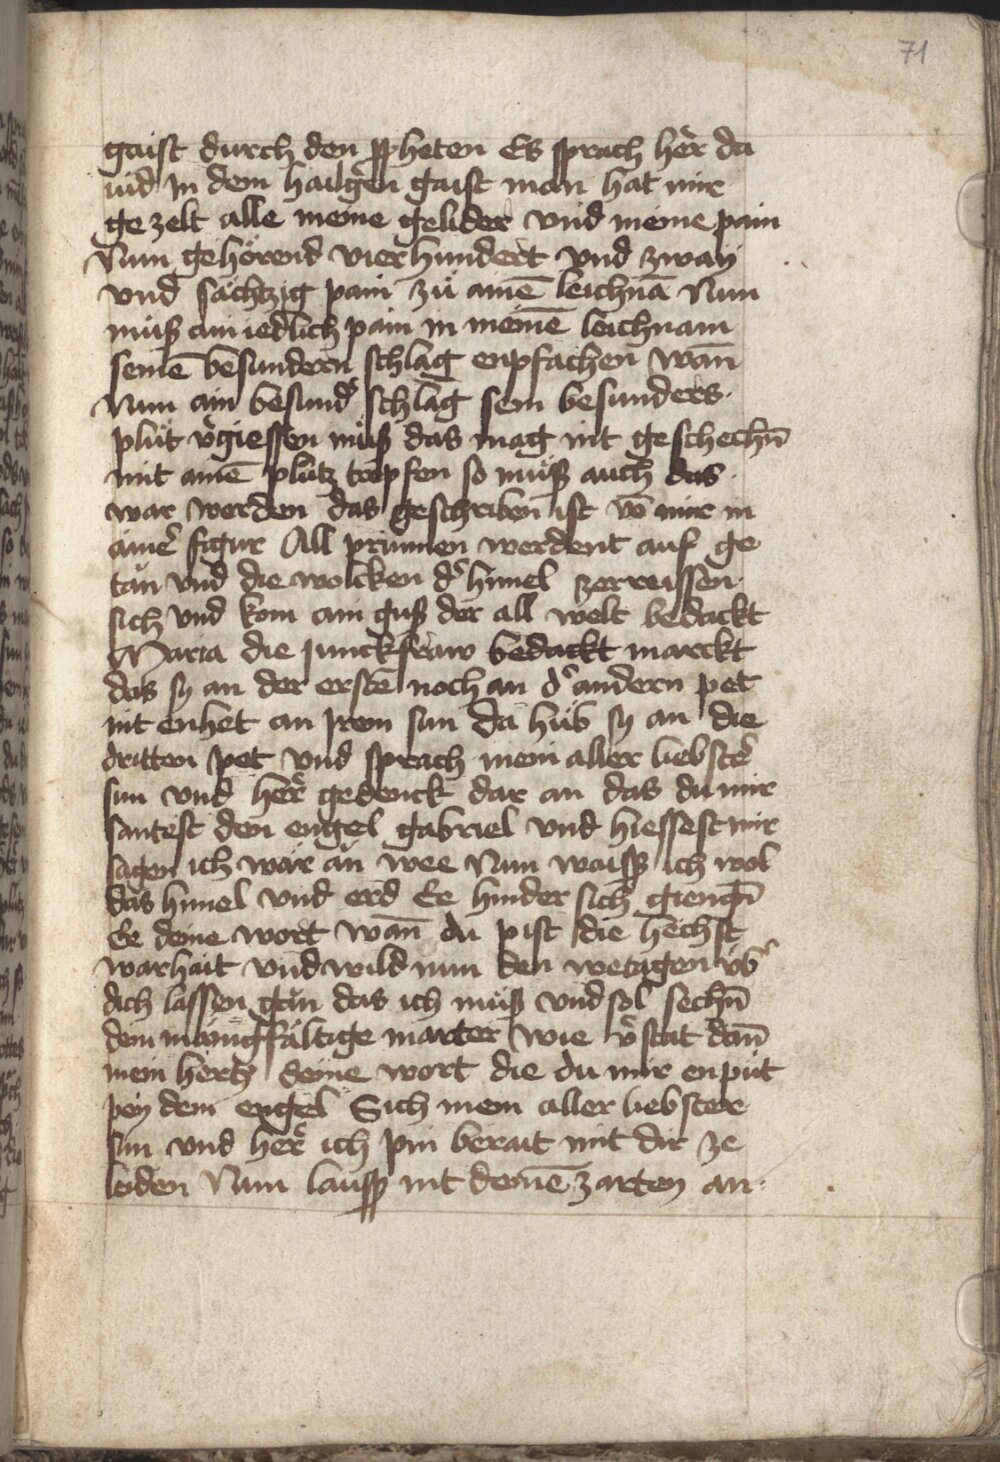 71
gaist durch den ppheten Es sprach her̄ da
uid jn dem hailgen gaist man hat mir
ge zelt alle meine gelider vnd meine pain
Nun gehörend vierhundert vnd zway
vnd sächtzig pain zů ainē leichnā Nun
můß ain iedlich pain in meinē leichnam
seinē besundern schlag enpfachen wan̄
Nun ain besund͛ schlag sein besunders
plůt v͛giessen můß das mag nit geschechn̄
mit ainē plůtz tropfen so můß auch das
war werden das geschriben ist vō mir in
ainer̄ figur All prunnen werdent auf ge
tůn vnd die wolcken d͛ himel zerreissen
sich vnd kom ain guß der all welt bedackt
Maria die junckfraw bedackt marckt
das sy an der erstē noch an d͛ andern pet
nit enhet an jrem sun da hůb sy an die
dritten pet vnd sprach mein aller liebster̄
sun vnd her̄ gedenck dar an das du mir
santest den engel gabriel vnd hiessest mir
sagen ich wär ān wee Nun waiss ich wol
das himel vnd erd Ee hinder sich giengn̄
Ee deine wort wan̄ du pist die hēchst
warhait vnd wild nun den wetagen vb͛
dich lassen gān das ich můß vnd sol sechn̄
dein mānigfältige marter wie v͛stat dan̄
mein hertz deine wort die du mir enpüt
pey dem engel Sich mein aller liebster
sun vnd her̄ ich pin berait mit dir ze
leiden Nun lauss nit deinē zarten an